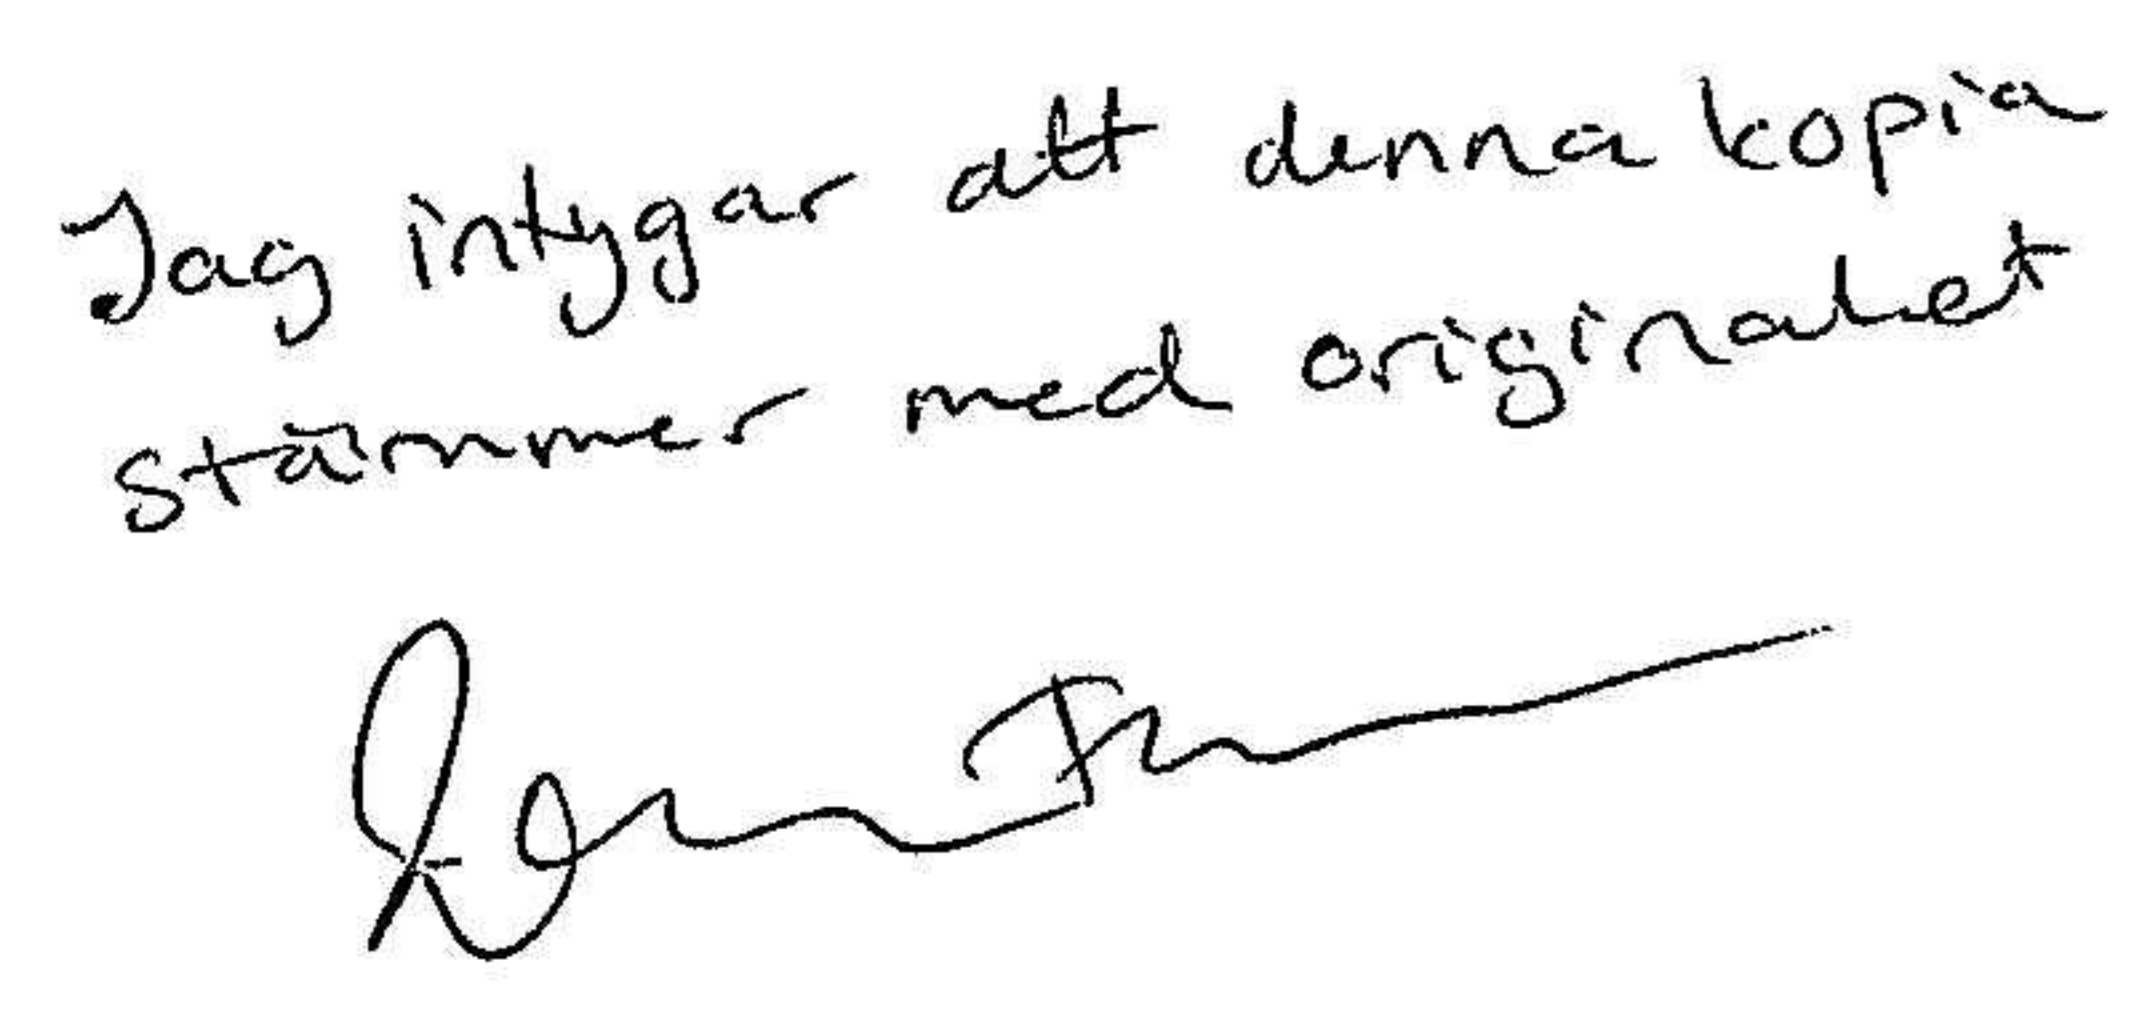 Jag intygar att denna kopia
stämmer med originalet